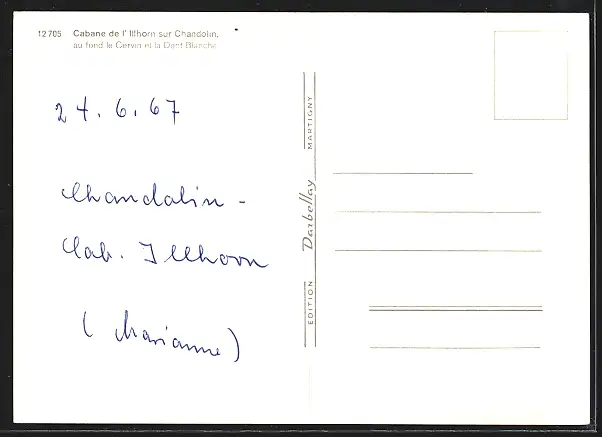 12705 Cabane de l' Illhorn sur Chandolin,
au fond le Cervin et la Dent Blanche
24. 6. 67
Chandolin -
Cab. Illhorn
(Marianne)
EDITION Darbellay MARTIGNY